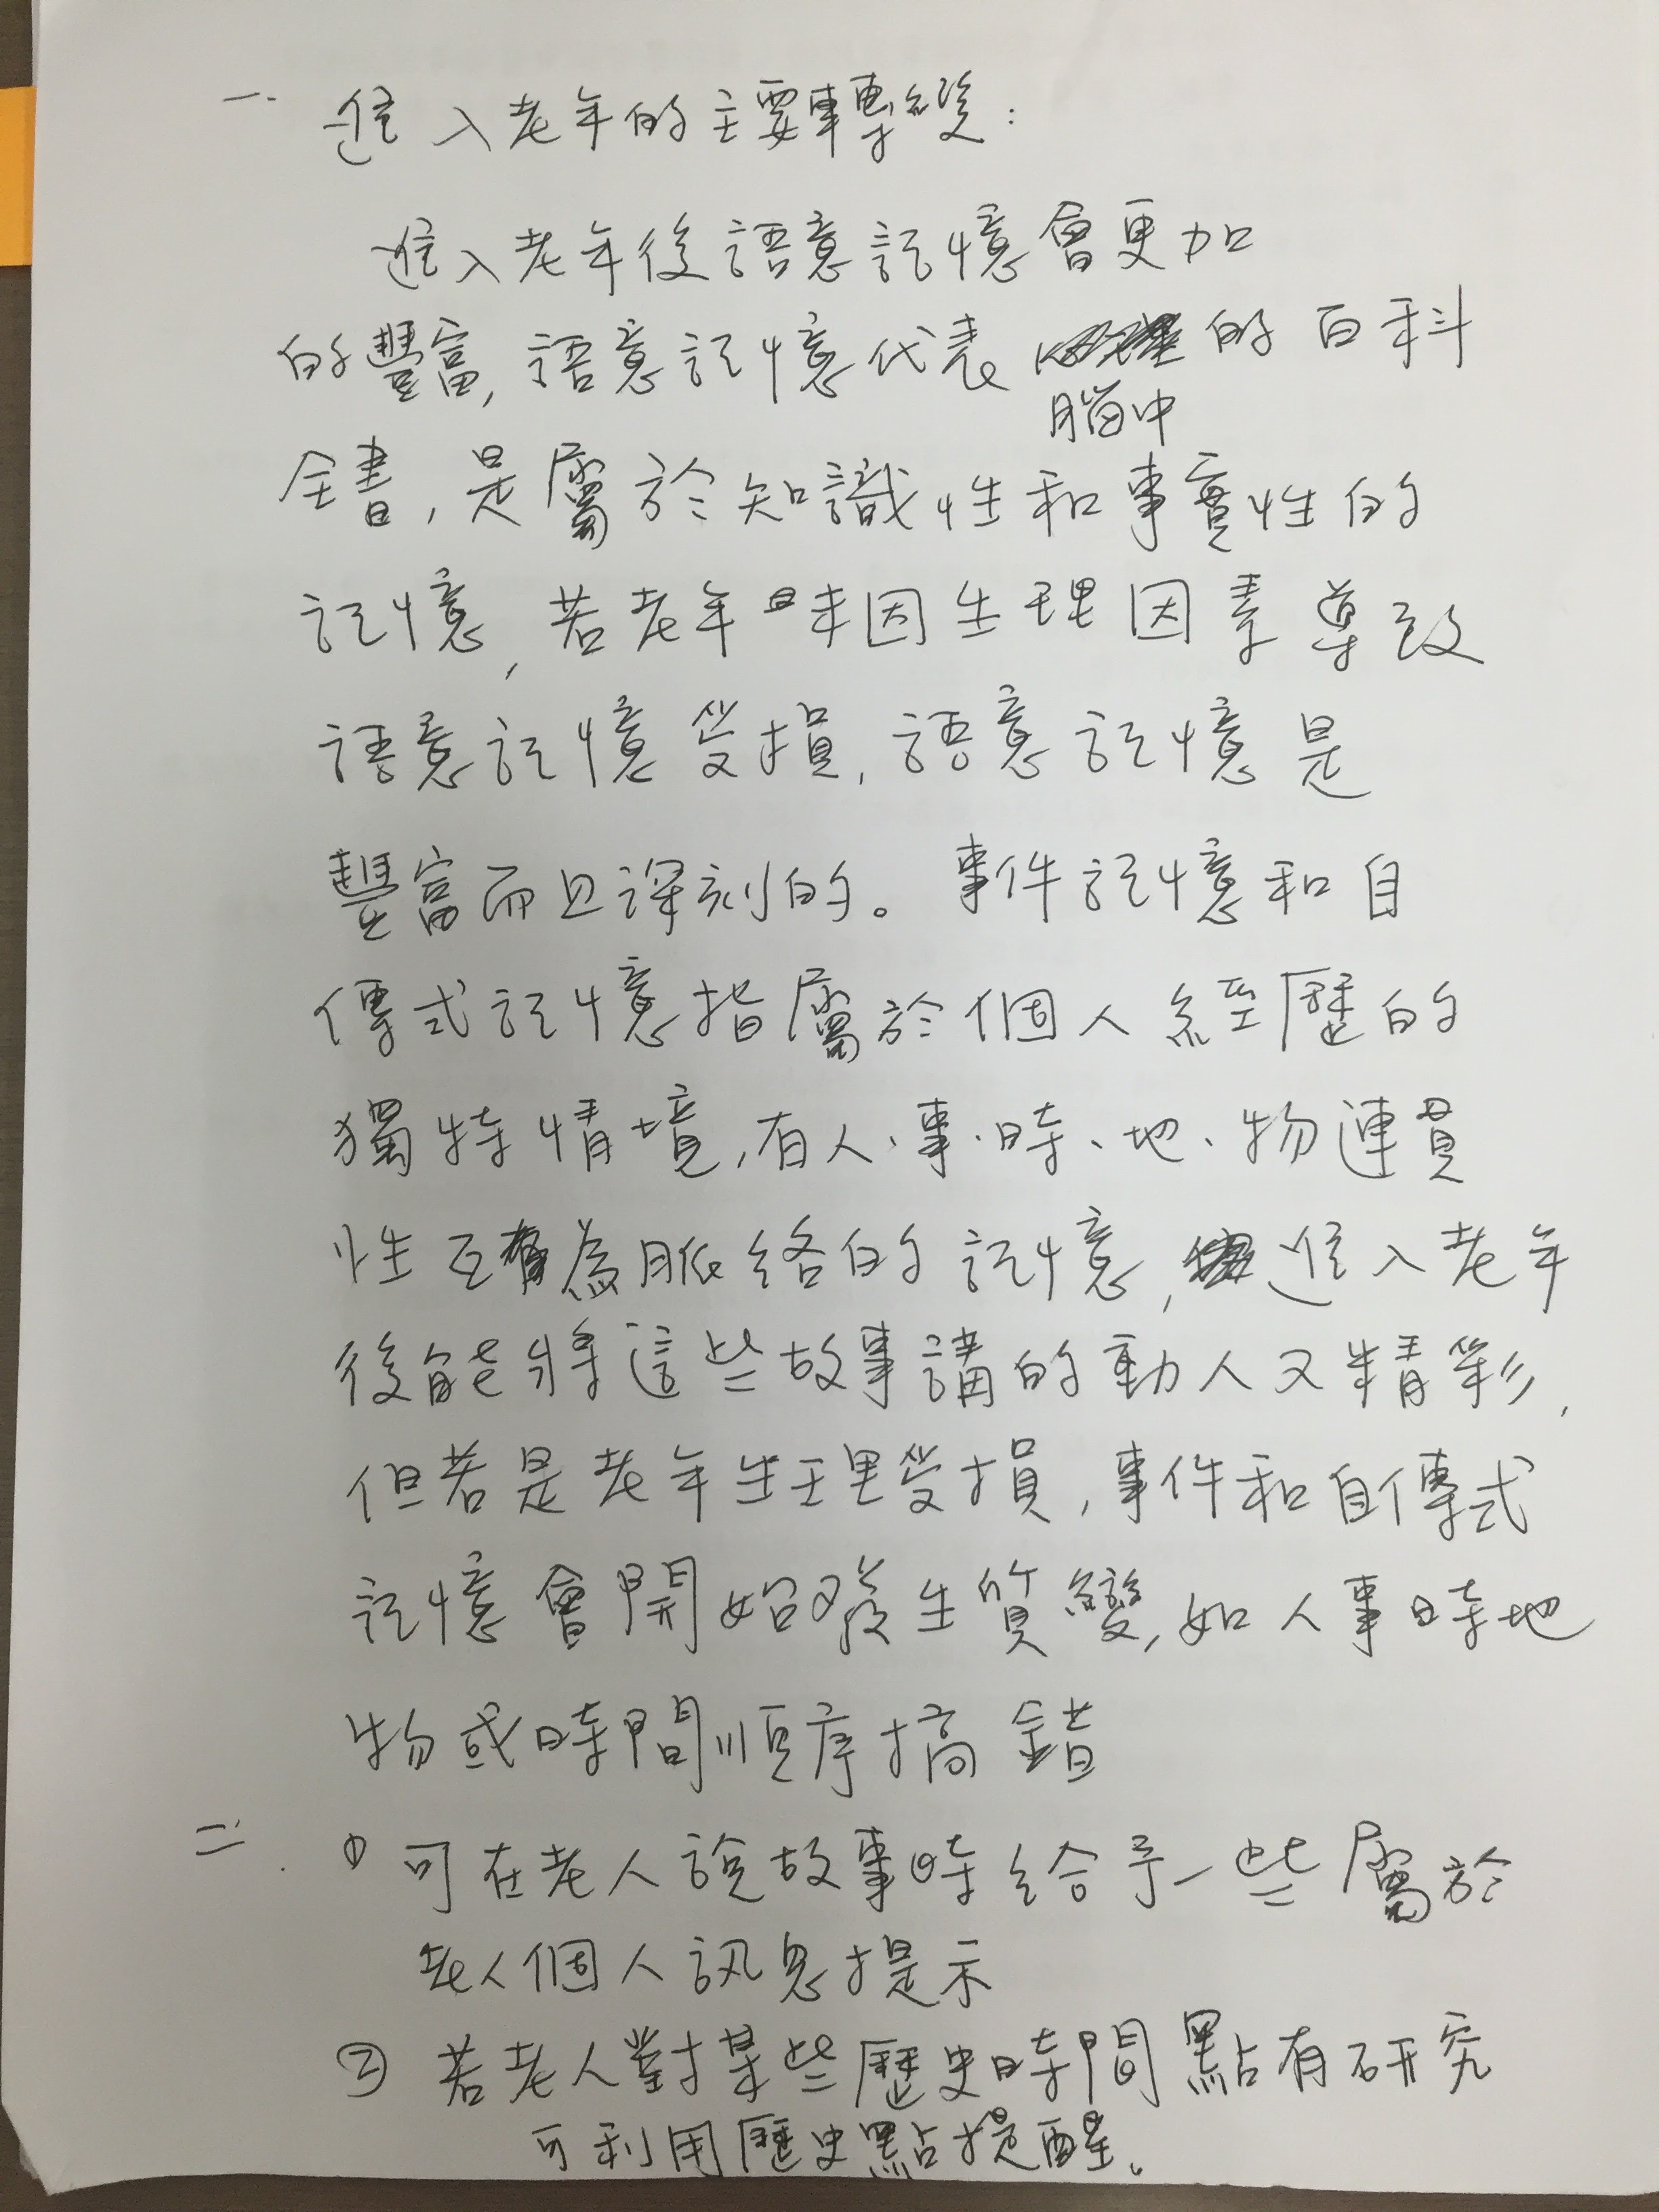 一. 進入老年的主要轉變:
進入老年後語意記憶會更加
的豐富, 語意記憶代表腦中的百科
全書, 是屬於知識性和事實性的
記憶, 若老年時因生理因素導致
語意記憶受損, 語意記憶是
豐富而且深刻的。事件記憶和自
傳式記憶指屬於個人經歷的
獨特情境, 有人、事、時、地、物連貫
性互為脈絡的記憶, 進入老年
後能將這些故事講的動人又精彩,
但若是老年生理受損, 事件和自傳式
記憶會開始發生質變, 如人事時地
物或時間順序搞錯
二. ① 可在老人說故事時給予一些屬於
老人個人訊息提示
② 若老人對某些歷史時間點有研究
可利用歷史點提醒。